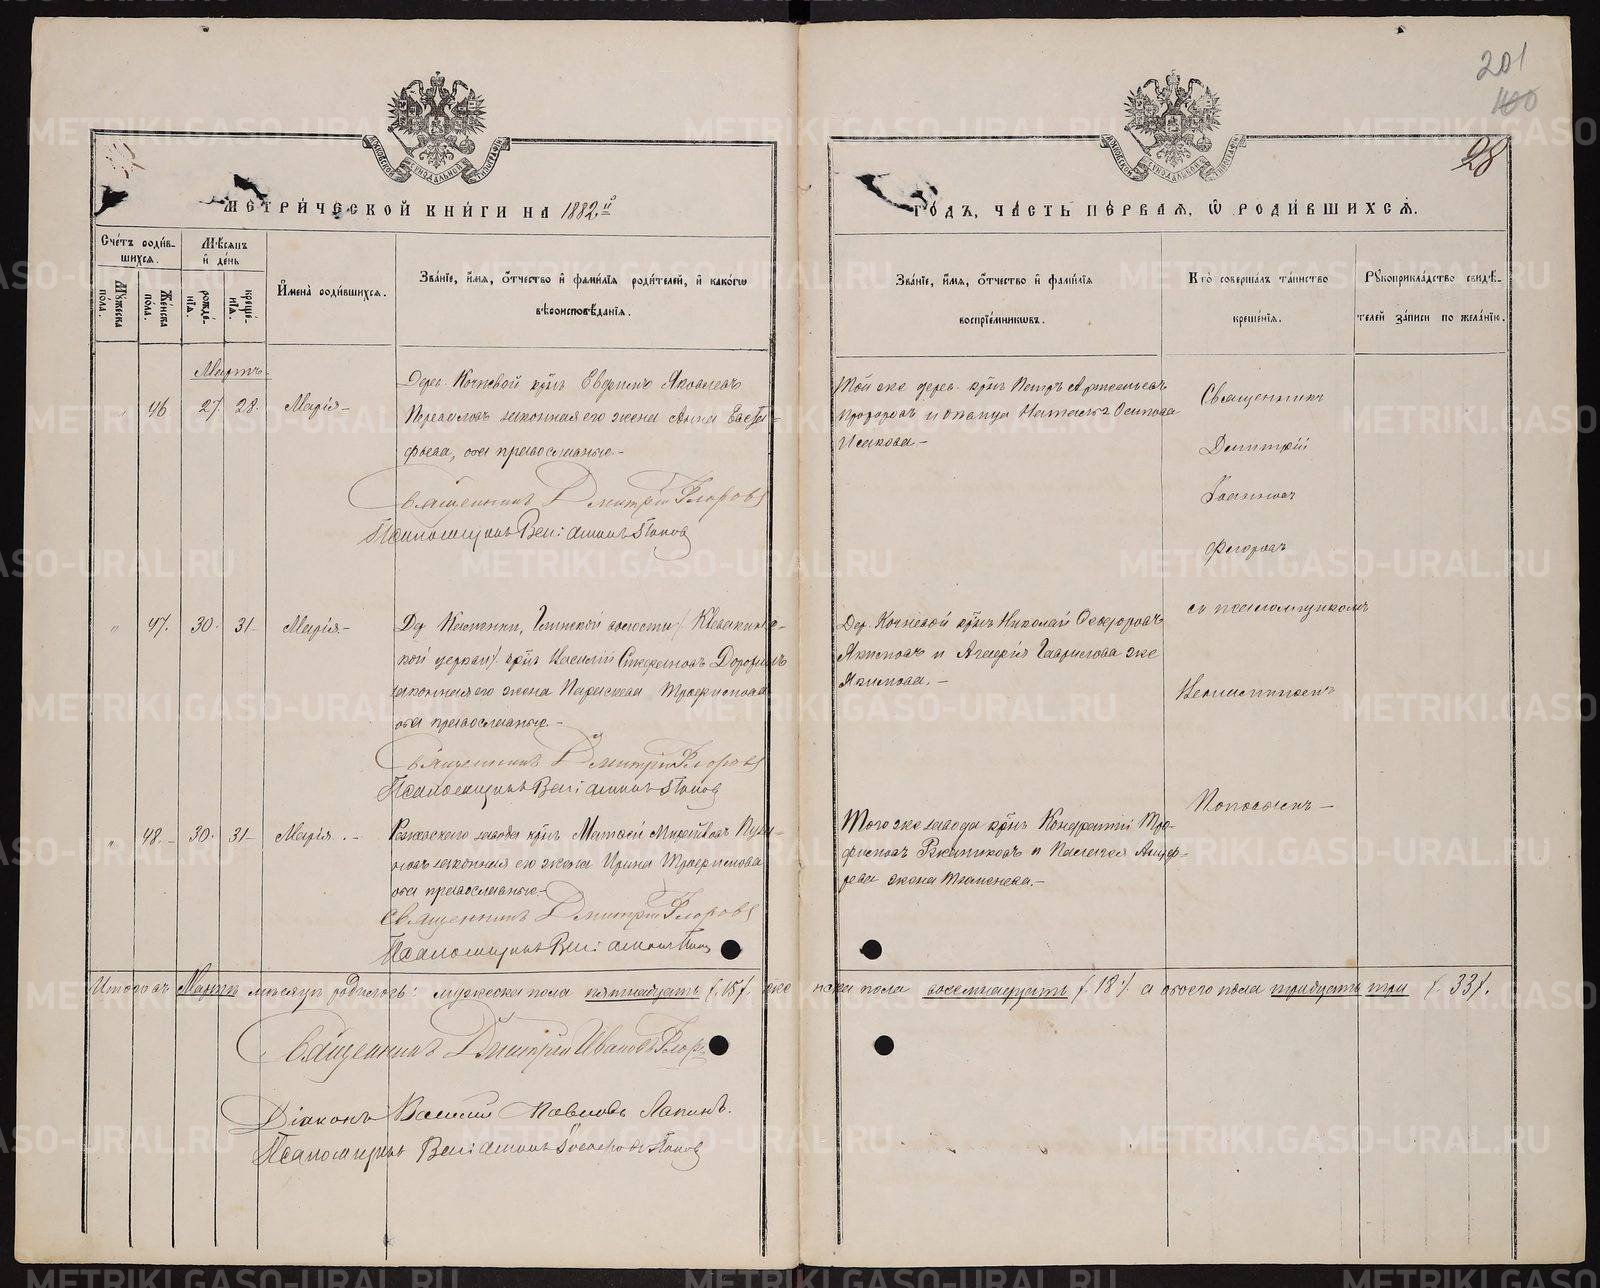 201
100
28
МЕТРИ́ЧЕСКОЙ КНИ́ГИ НА 1882.й
ГО́ДЪ, ЧА́СТЬ ПЕ́РВАЯ, Ѡ҆ РОДИ́ВШИХСѦ.
Сче́тъ роди́в-
шихсѧ.
Мꙋ́жеска по́ла.
Же́нска по́ла.
Мѣ́сѧцъ
и҆ де́нь
рожде́-
нїѧ.
креще́-
нїѧ.
И҆мена̀ роди́вшихсѧ.
Зва́нїе, и҆́мѧ, ѻ҆́тчество и҆ фамі́лїѧ роди́телей, и҆ како́гѡ
вѣроисповѣ́данїѧ.
Зва́нїе, и҆́мѧ, ѻ҆́тчество и҆ фамі́лїѧ
воспрїе́мникѡвъ.
Кто̀ соверша́лъ та́инство
креще́нїѧ.
Рꙋкоприкла́дство свидѣ́-
телей за́писи по жела́нїю.
Мартъ
46 27. 28. Марія-
Дерев. Кочневой кр̃нъ Евдокимъ Яковлевъ
законная его жена Анна Евста-
фьева, оба православные.-
Священникъ Дмитрій Флоровъ
Псаломщикъ Веніаминъ Поповъ
Той же дерев. кр̃нъ Петръ Артемьевъ
и Наталья Осипова
Исакова-
Священникъ
Димитрій
Іоанновъ
Флоровъ
съ псаломщикомъ
Веніаминомъ
Поповымъ-
" 47. 30. 31- Марія-
Дер. Глинской волости
кой церкви кр̃нъ Василій Стефановъ Дорофеевъ
законная его жена Параскева Трофимова
оба православные.-
Священникъ Дмитрій Флоровъ
Псаломщикъ Веніаминъ Поповъ
Дер. Кочневой кр̃нъ Николай Ѳеодоровъ
Якимовъ и Агафія Гаврилова же
Якимова.-
" 48.- 30. 31- Марія.-
Режевского завода кр̃нъ Матѳей
законная его жена Ирина Трофимова
оба православные-
Священникъ Дмитрій Флоровъ
Псаломщикъ Веніаминъ Поповъ
Того же завода кр̃нъ Кондратій Тро-
фимовъ и Пелагея Андре-
ева жена
Итого въ Мартѣ мѣсяцѣ родилось: мужеска пола пятнадцать /.15/. же
нска пола восемнадцать /.18/. а обоего пола тридцать три /.33/.
Священникъ Дмитрій Ивановъ Флоровъ
Діаконъ Василій Павловъ Лапинъ.
Псаломщикъ Веніаминъ Поповъ
METRIKI.GASO-URAL.RU